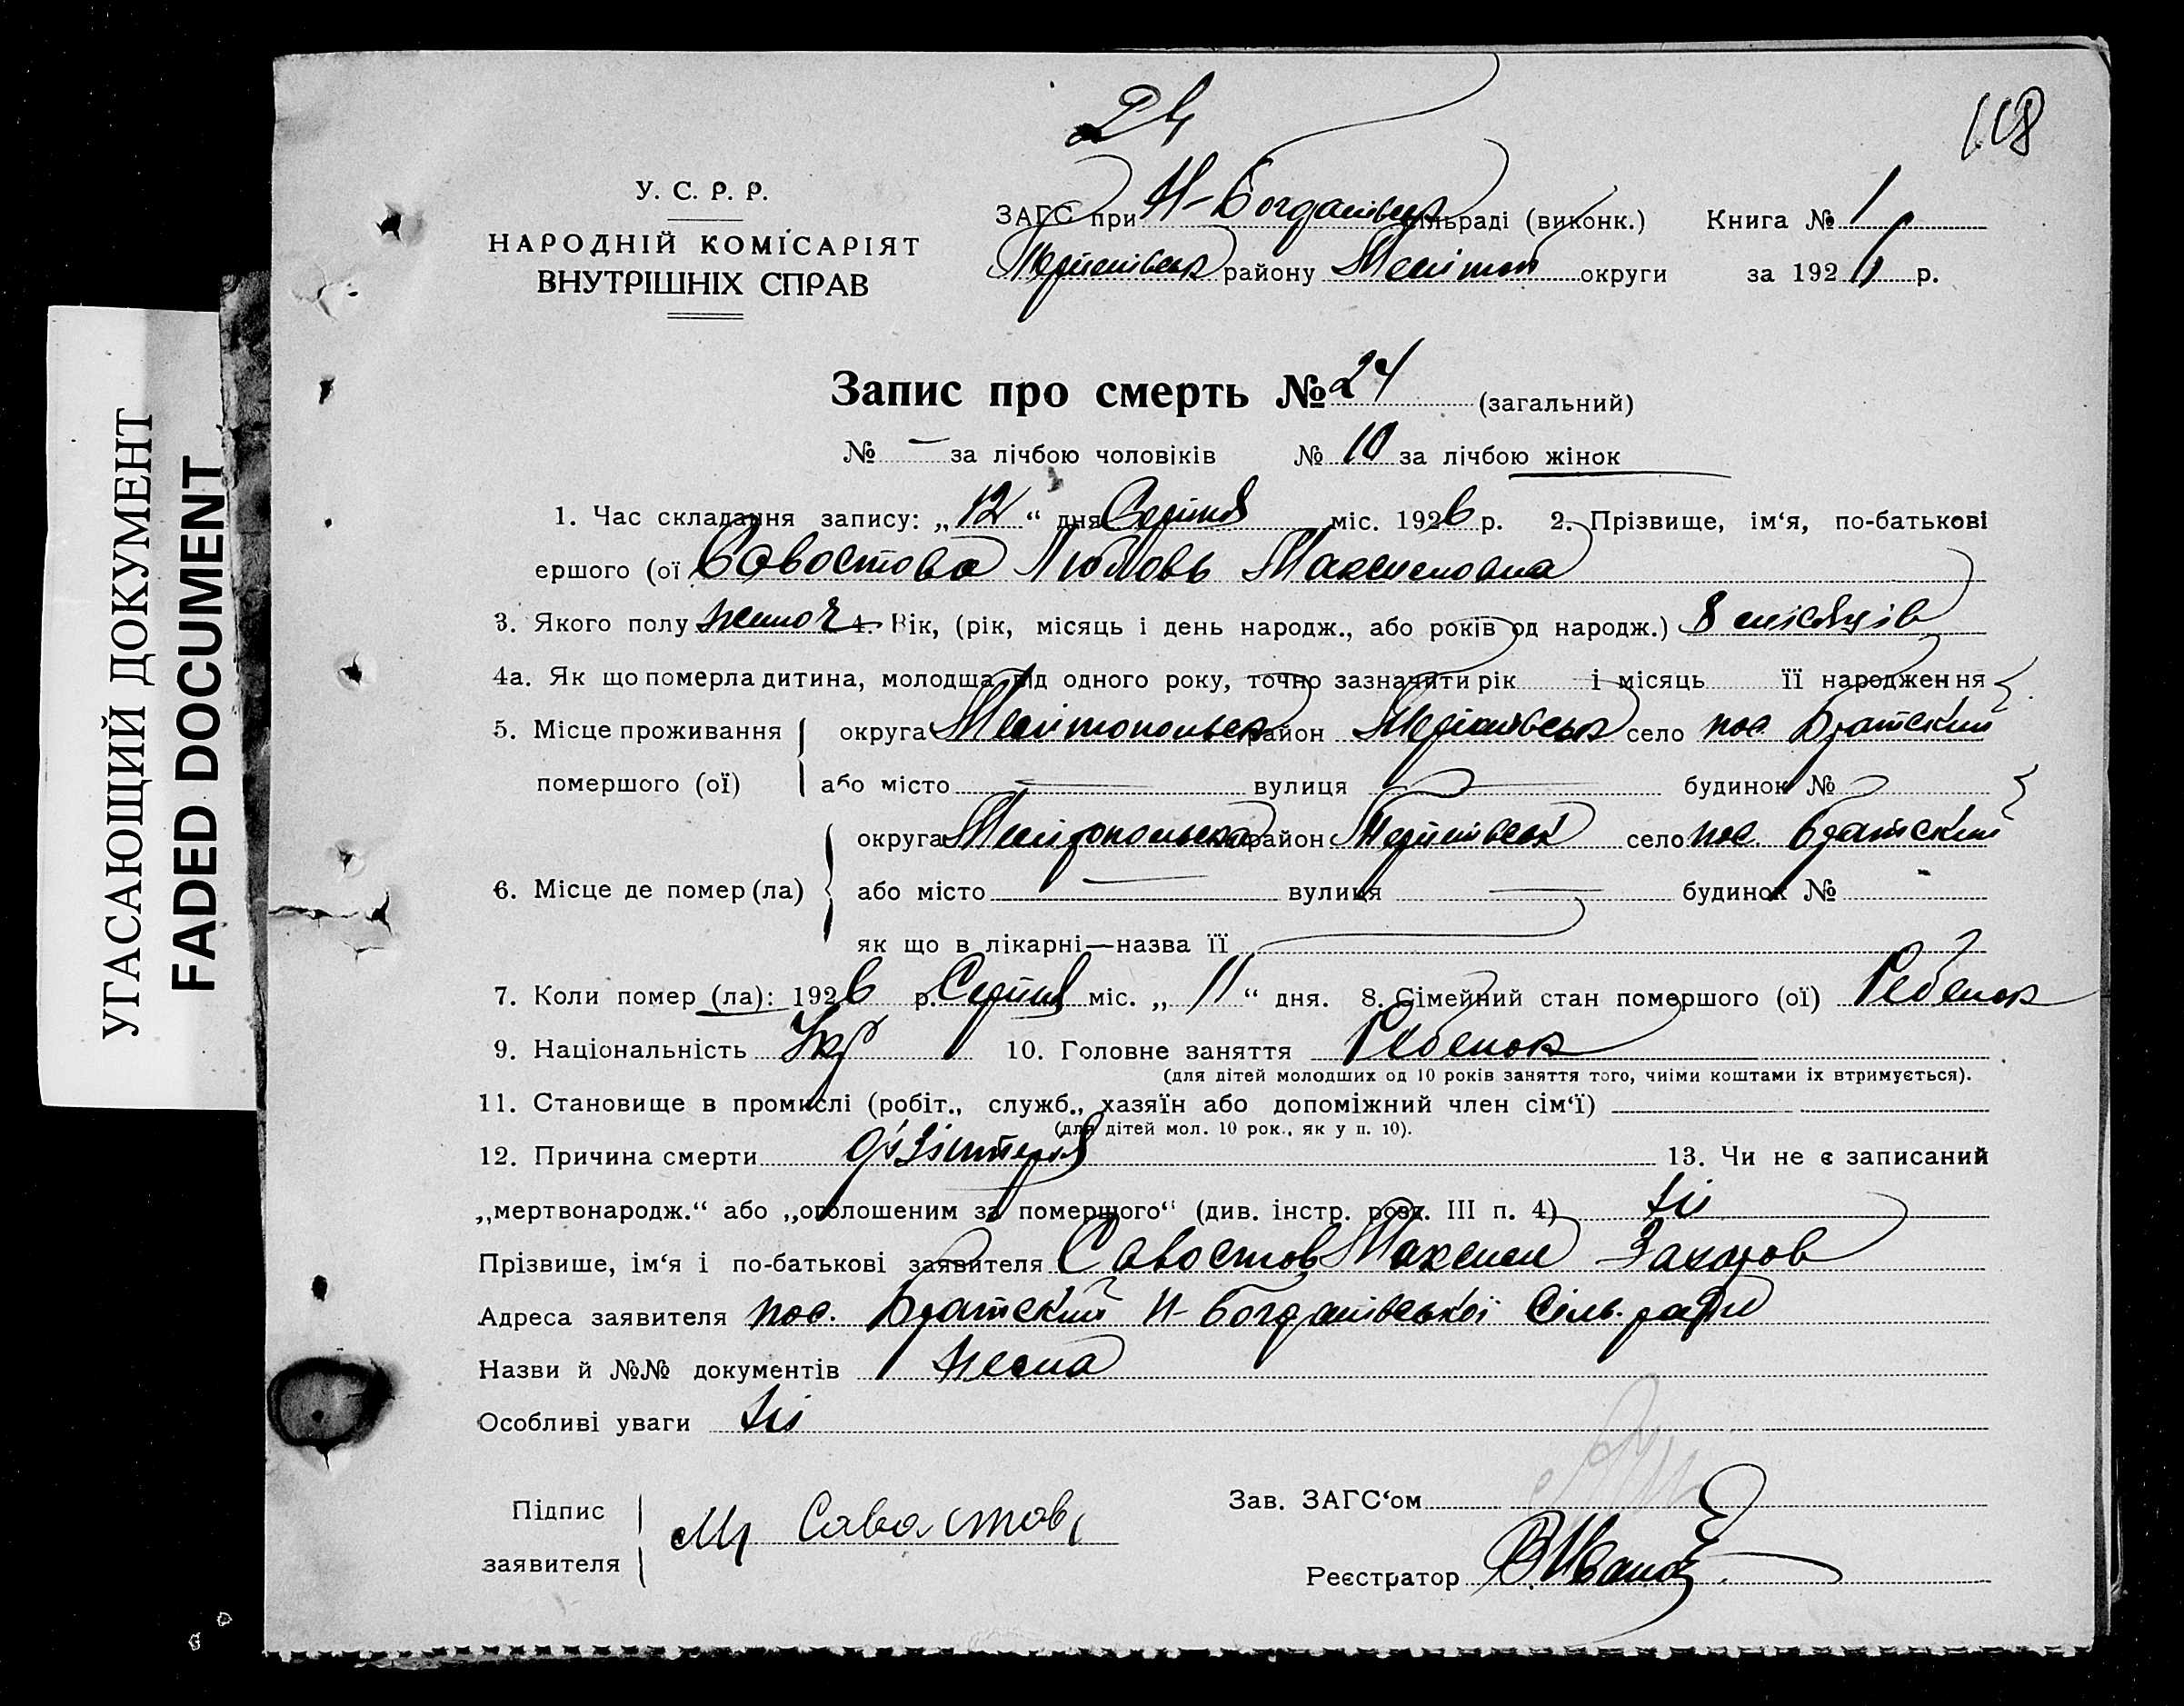 24
118
У. С. Р. Р.
НАРОДНІЙ КОМІСАРІЯТ
ВНУТРІШНІХ СПРАВ
ЗАГС при Н-Богданівськ сільраді (виконк.) Книга № 1
району Мелітоп округи за 1926 р.
Запис про смерть № 24 (загальний)
№ — за лічбою чоловіків № 10 за лічбою жінок
1. Час складання запису: „12“ дня Серпня міс. 1926 р. 2. Прізвище, ім‘я, по-батькові
ершого (ої Савостова Любовь Максимовна
3. Якого полу жіноч 4. Вік, (рік, місяць і день народж., або років од народж.) 8 місяців
4а. Як що померла дитина, молодща від одного року, точно зазначити рік і місяць її народження
5. Місце проживання округа Мелітопольськ район село пос. Братский
помершого (ої) або місто — вулиця — будинок №
округа Мелітопольська район село пос. Братский
6. Місце де помер (ла) або місто — вулиця — будинок №
як що в лікарні—назва її
7. Коли помер (ла): 1926 р. Серпня міс. „11“ дня. 8. Сімейний стан помершого (ої) Ребенок
9. Національність Укр 10. Головне заняття Ребенок
(для дітей молодших од 10 років заняття того, чиїми коштами їх втримується).
11. Становище в промислі (робіт., служб., хазяїн або допоміжний член сім‘ї)
(для дітей мол. 10 рок., як у п. 10).
12. Причина смерти дізінтерія 13. Чи не є записаний
„мертвонародж.“ або „оголошеним за помершого“ (див. інстр. розд. III п. 4) Ні
Прізвище, ім‘я і по-батькові заявителя Савостов Максим Захаров
Адреса заявителя пос. Братский Н-Богданівської Сіль.ради
Назви й №№ документів Нема
Особливі уваги Ні
Підпис
заявителя
М Савастов
Зав. ЗАГС‘ом
Реєстратор
УГАСАЮЩИЙ ДОКУМЕНТ
FADED DOCUMENT